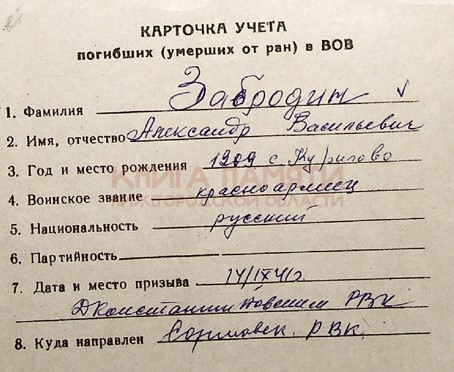 КАРТОЧКА УЧЕТА
погибших (умерших от ран) в ВОВ
1. Фамилия Забродин
2. Имя, отчество Александр Васильевич
3. Год и место рождения 1909 с. Курилово
КНИГА ПАМЯТИ
4. Воинское звание красноармеец
НИЖЕГОРОДСКОЙ ОБЛАСТИ
5. Национальность русский
6. Партийность
7. Дата и место призыва 14/IX 41г
РВК
8. Куда направлен Сормовск. РВК